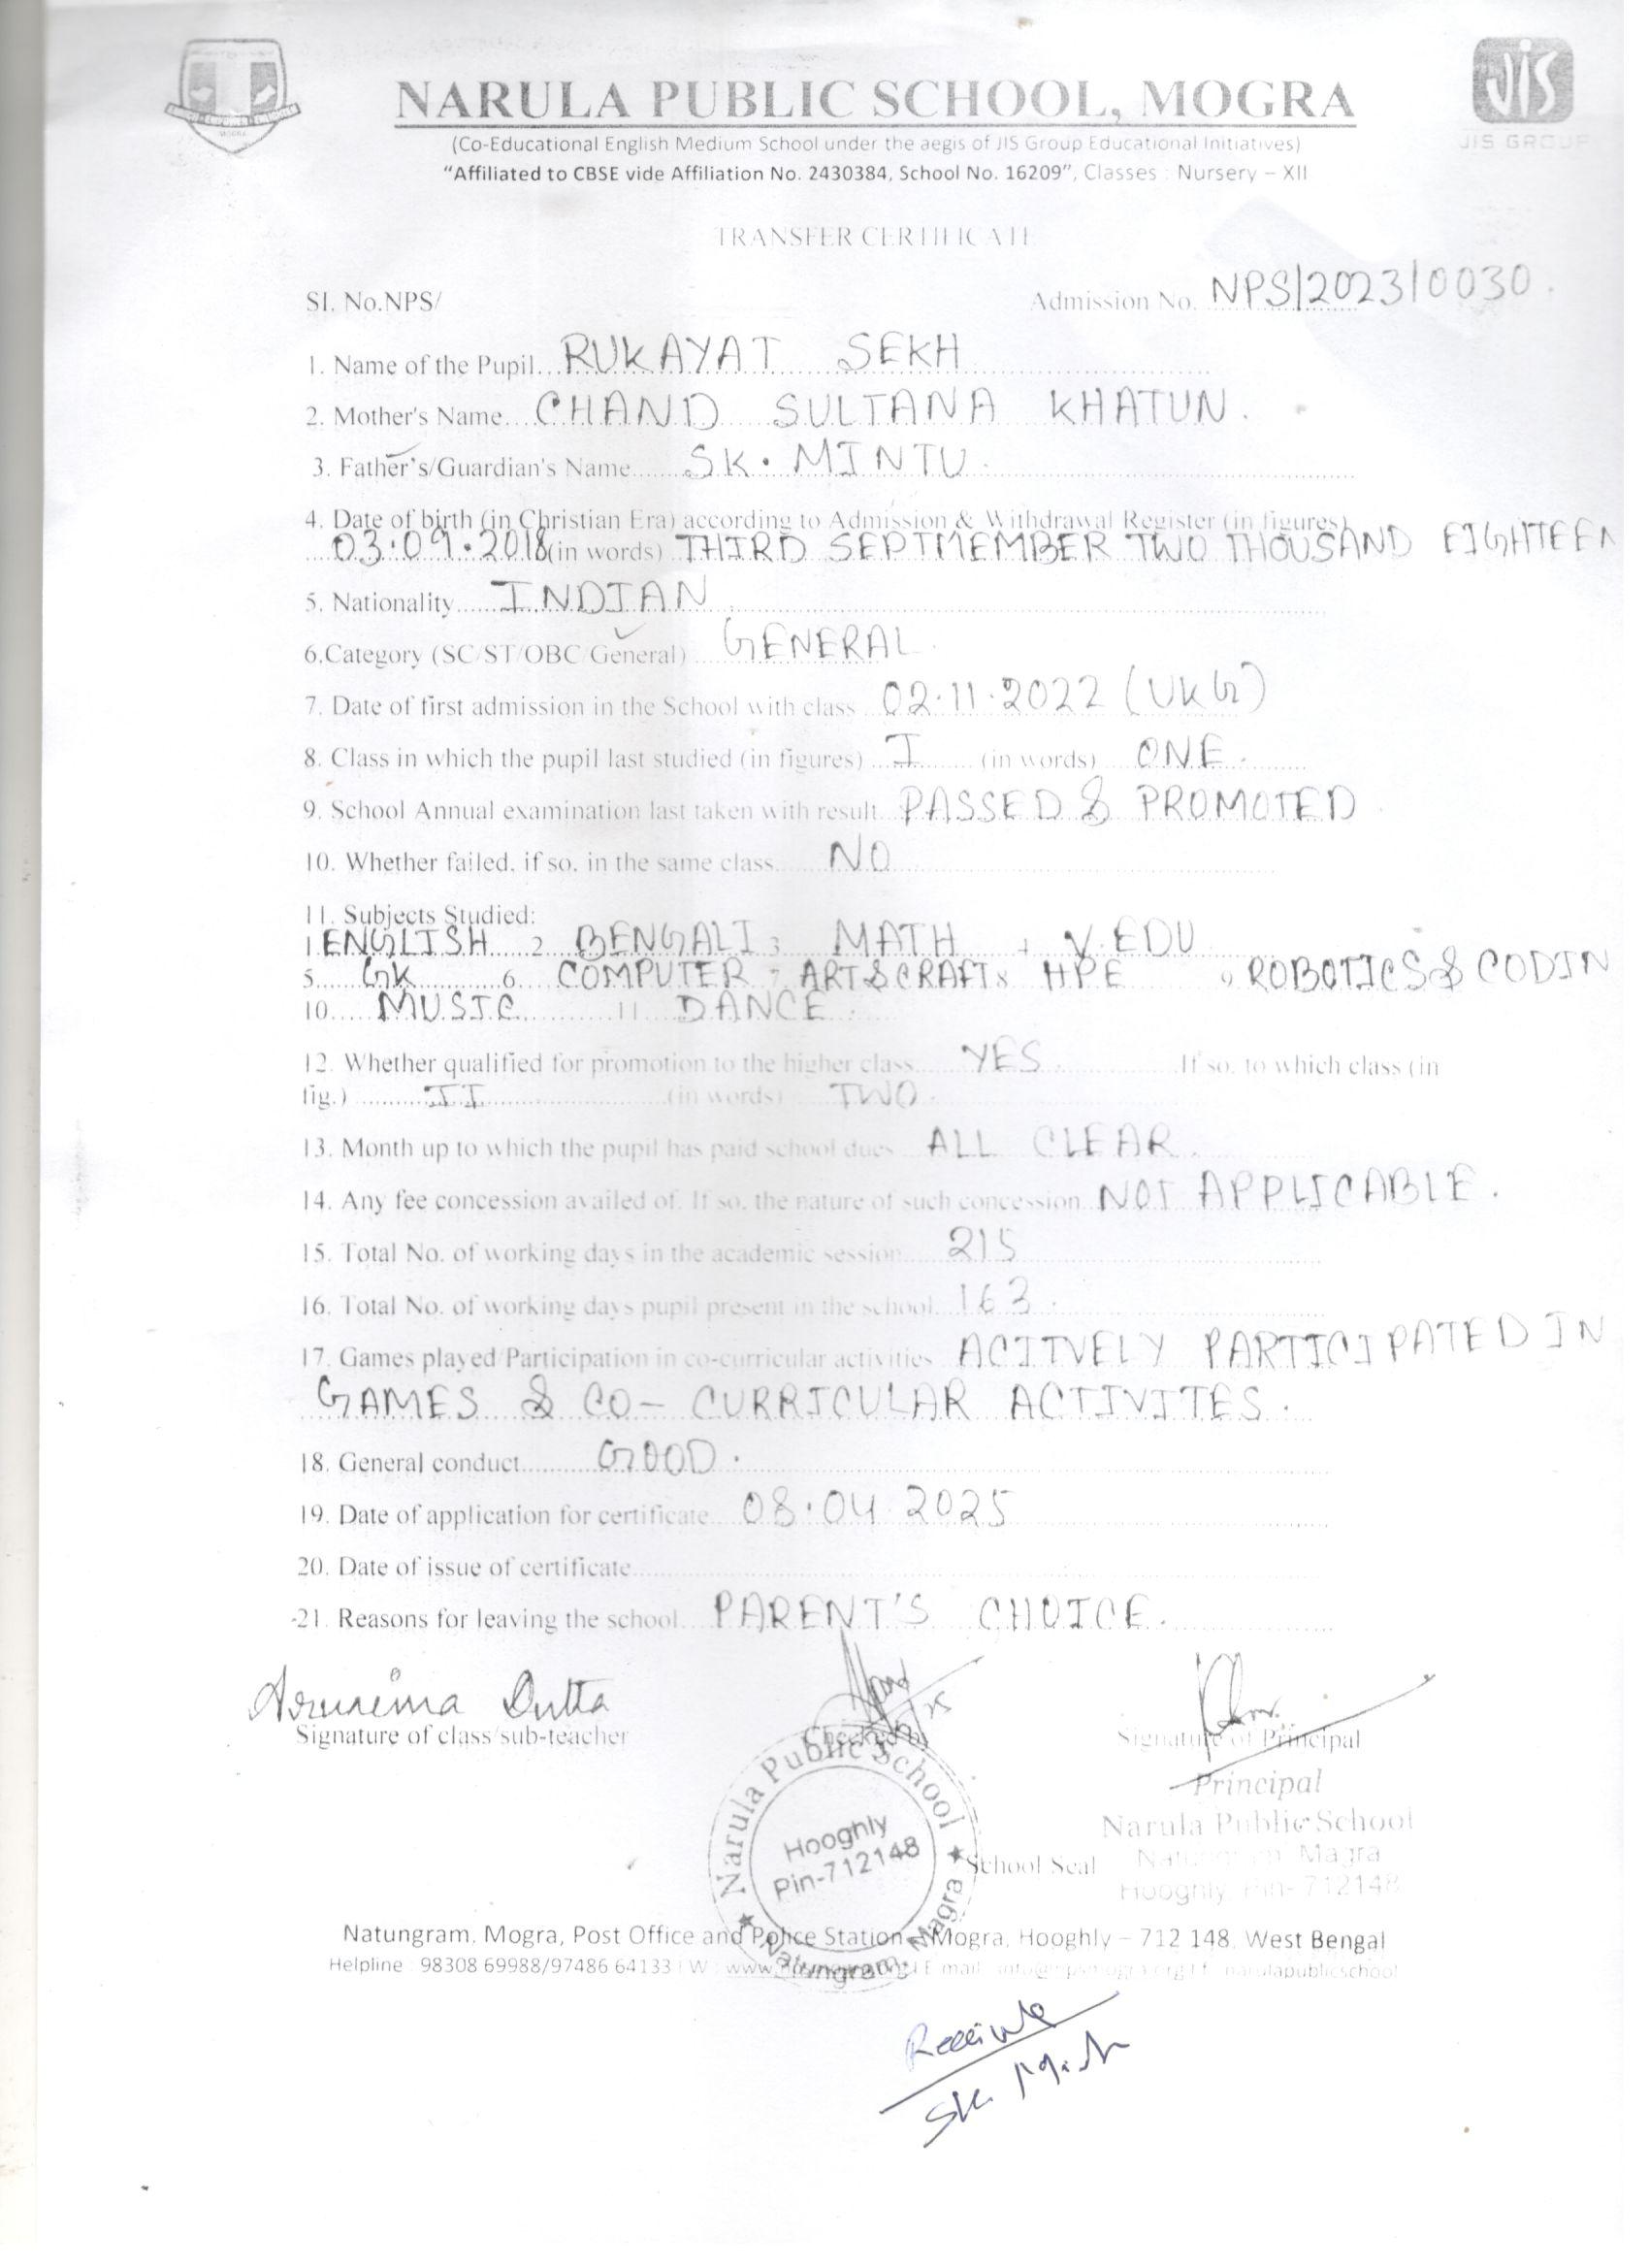 NARULA PUBLIC SCHOOL, MOGRA
JIS
JIS GROUP
MOGRA
(Co-Educational English Medium School under the aegis of JIS Group Educational Initiatives)
"Affiliated to CBSE vide Affiliation No. 2430384, School No. 16209", Classes : Nursery – XII
TRANSFER CERTIFICATE
Sl. No.NPS/ Admission No. NPS/2023/0030.
1. Name of the Pupil RUKAYAT SEKH
2. Mother's Name CHAND SULTANA KHATUN.
3. Father's/Guardian's Name SK. MINTU.
4. Date of birth (in Christian Era) according to Admission & Withdrawal Register (in figures)
03.09.2018 (in words) THIRD SEPTMEMBER TWO THOUSAND EIGHTEEN
5. Nationality INDIAN
6.Category (SC/ST/OBC/General) GENERAL.
7. Date of first admission in the School with class 02.11.2022 (UKG)
8. Class in which the pupil last studied (in figures) I (in words) ONE.
9. School Annual examination last taken with result PASSED & PROMOTED.
10. Whether failed, if so, in the same class NO
11. Subjects Studied:
1 ENGLISH 2. BENGALI 3 MATH 4 V.EDU
5. GK 6. COMPUTER 7 ART&CRAFT 8 HPE 9 ROBOTICS & CODIN
10. MUSIC 11 DANCE.
12. Whether qualified for promotion to the higher class YES. If so, to which class (in
fig.) II (in words) TWO.
13. Month up to which the pupil has paid school dues ALL CLEAR.
14. Any fee concession availed of. If so, the nature of such concession NOT APPLICABLE.
15. Total No. of working days in the academic session 215
16. Total No. of working days pupil present in the school 163.
17. Games played/Participation in co-curricular activities ACITVELY PARTICIPATED IN
GAMES & CO- CURRICULAR ACTIVITES.
18. General conduct GOOD.
19. Date of application for certificate 08.04.2025
20. Date of issue of certificate
21. Reasons for leaving the school PARENT'S CHOICE.
Arunima Dutta
Signature of class/sub-teacher Checked by Signature of Principal
Principal
Narula Public School
Natungram, Magra
Hooghly, Pin- 712148
School Seal
Narula Public School
Hooghly
Pin-712148
Natungram, Magra
Natungram, Mogra, Post Office and Police Station – Mogra, Hooghly – 712 148, West Bengal
Helpline : 98308 69988/97486 64133 I W : www. E mail : narulapublicschool
SK.